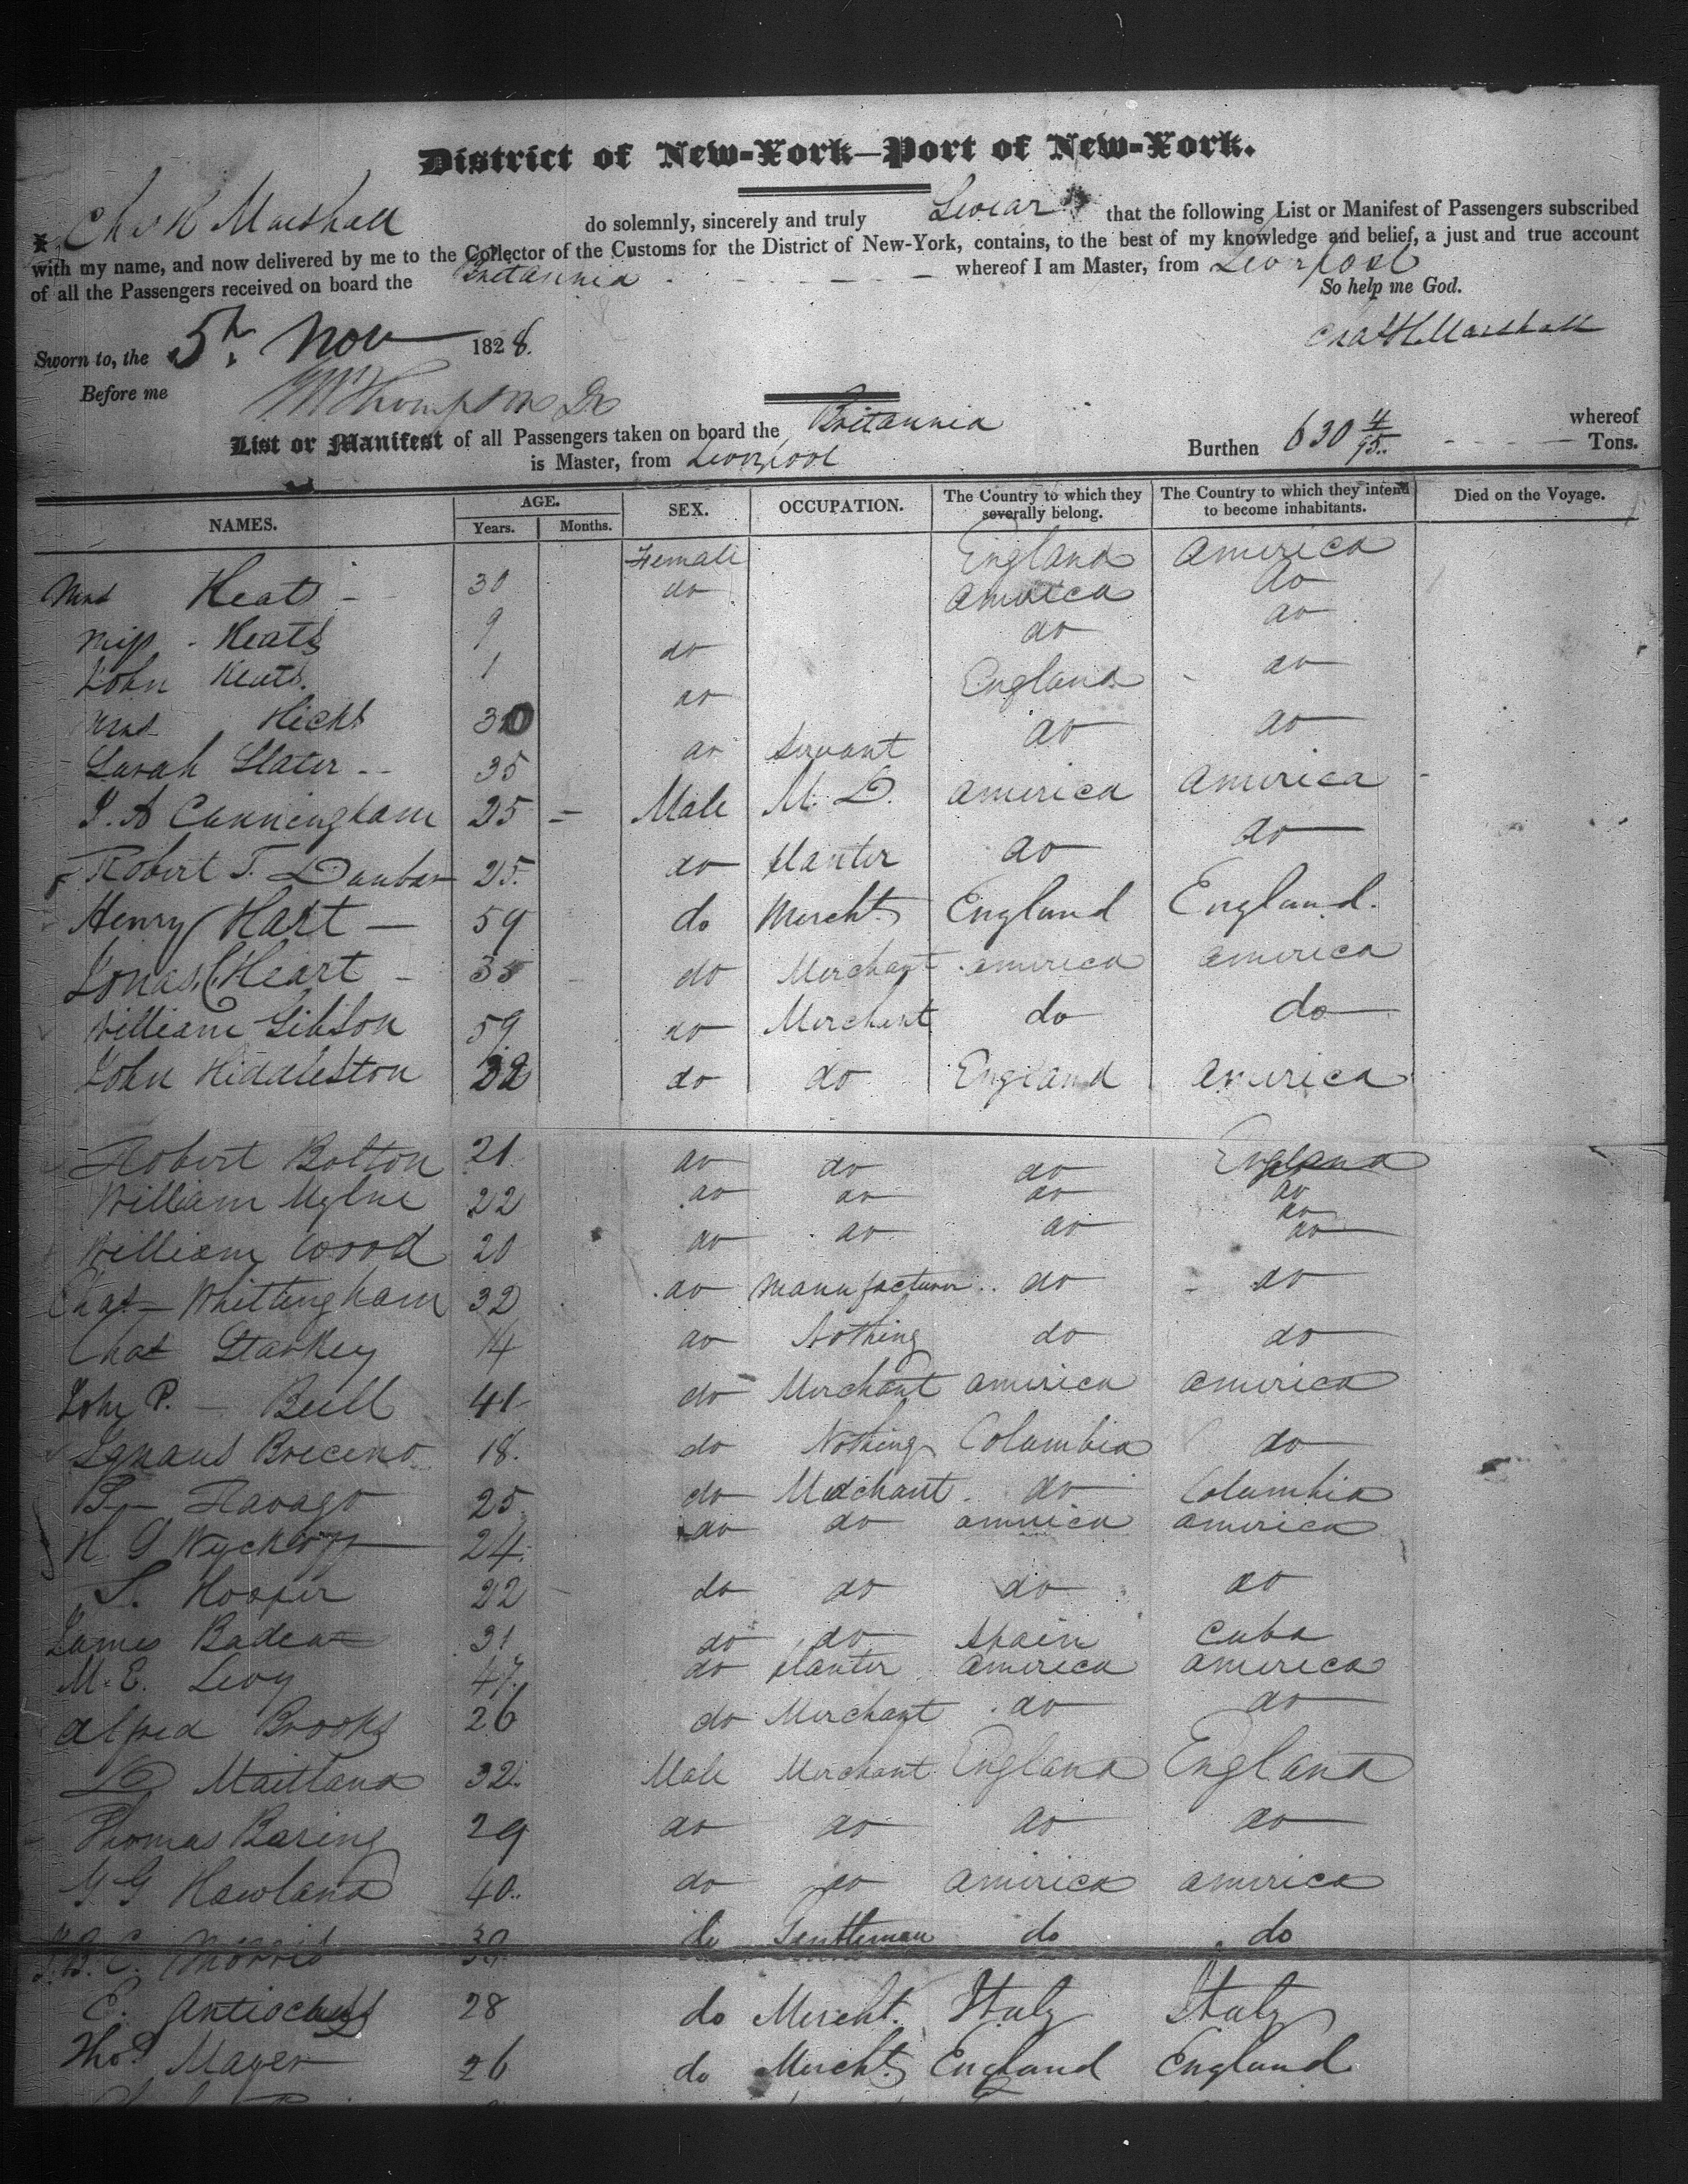 District of New-York—Port of New-York.
I, Chas H Marshall do solemnly, sincerely and truly Swear that the following List or Manifest of Passengers subscribed
with my name, and now delivered by me to the Collector of the Customs for the District of New-York, contains, to the best of my knowledge and belief, a just and true account
of all the Passengers received on board the Britannia whereof I am Master, from Liverpool
So help me God.
Sworn to, the 5th Nov 1828. Chas H Marshall
Before me Thompson
List or Manifest of all Passengers taken on board the Britannia whereof
is Master, from Liverpool Burthen 630 4/95 Tons.
NAMES. AGE. Years. Months. SEX. OCCUPATION. The Country to which they severally belong. The Country to which they intend to become inhabitants. Died on the Voyage.
Mrs Keats 30 Female England America
Miss Keats 9 do America do
John Keats 1 do do do
Mrs Hicks 30 do England do
Sarah Slater 35 do Servant do do
J. A Cunningham 25 Male M. D. America America
Robert T. Dunbar 25. do Planter do do
Henry Hart 59 do Mercht. England England.
Jonas Heart 35 do Merchant America America
William Gibson 59 do Merchant do do
John Hiddleston 32 do do England America
Robert Bolton 21 do do do England
William Mylne 22 do do do do
do
William Wood 20 do do do do
Chas Whittingham 32 do Manufacturer do do
Chas Starkey 14 do Nothing do do
John P. Bull 41 do Merchant America America
Breceno 18. do Nothing Columbia do
25 do Merchant do Columbia
H. G Wyckoff 24 do do America America
S. Hooper 22 do do do do
James Badea 31 do do Spain Cuba
M. E. Levy 47. do Planter America America
Alfred Brooks 26 do Merchant do do
Maitland 32. Male Merchant England England
Thomas Baring 29 do do do do
G G Howland 40. do do America America
Morris 30 do Gentleman do do
E. 28 do Mercht. Italy Italy
Thos Mayer 26 do Mercht. England England